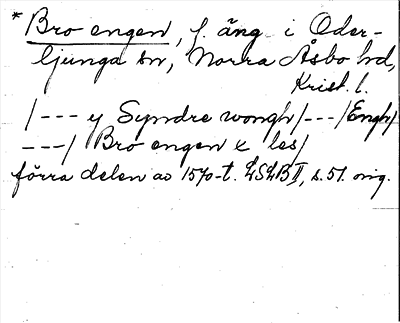 * Bro engen, f. äng i Oder-
ljunga sn, Norra Åsbo hd,
Krist. l.
/--- y Syndre wongh/---/Engh/
---/ Bro engen x les/
förra delen av 1570-t. LSLB II, s. 51. orig.